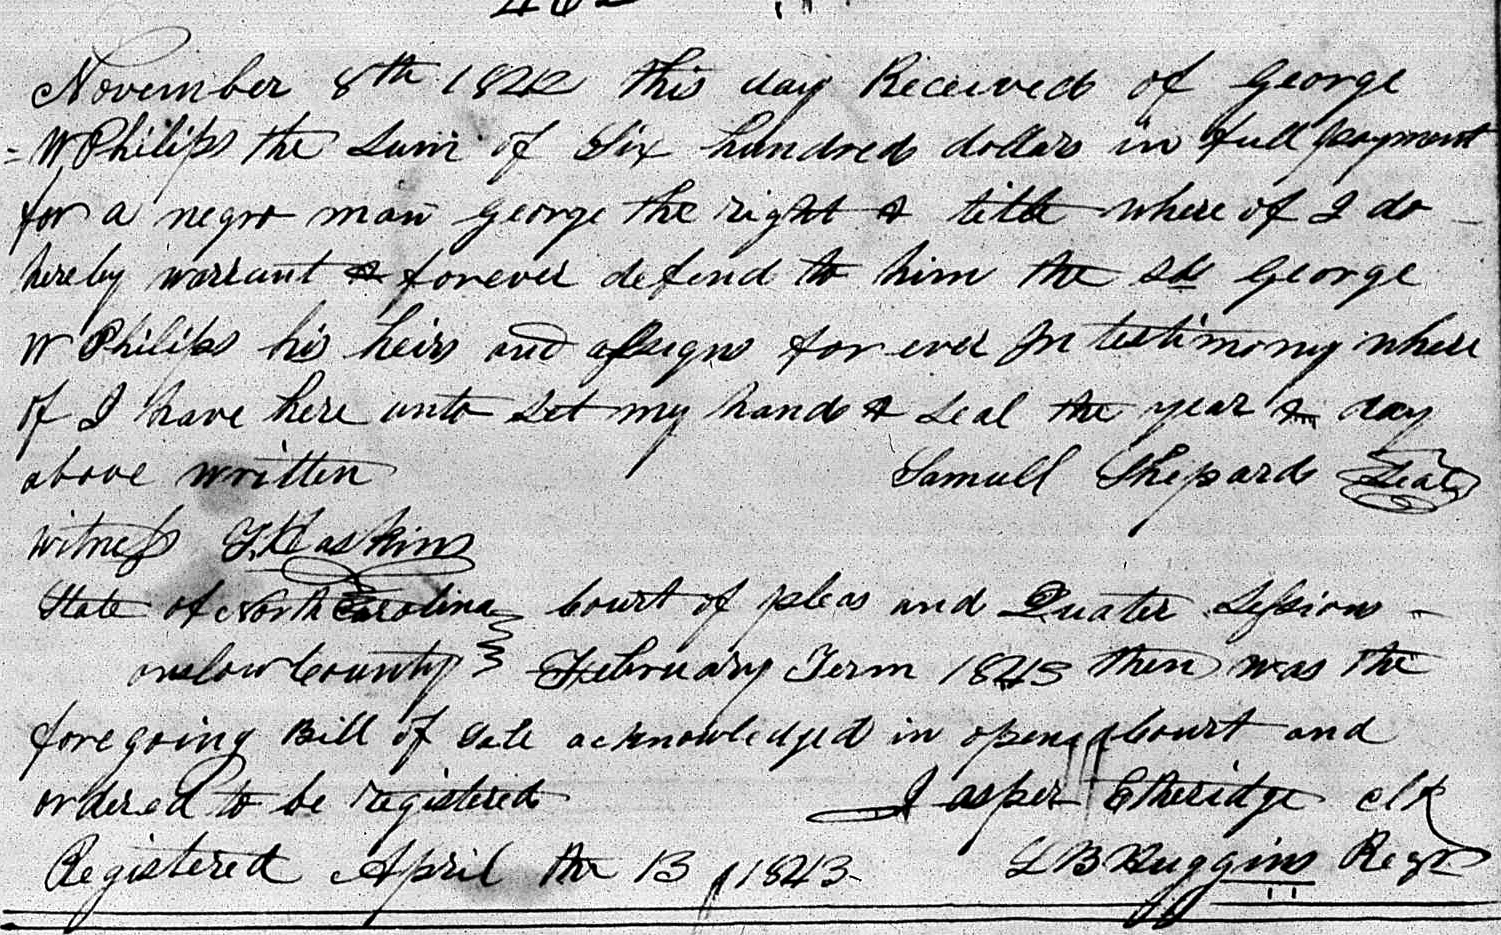 November 8th 1842 this day Received of George
W Philips the Sum of Six hundred dollars in full payment
for a negro man George the right & title where of I do
hereby warrant & forever defend to him the sd George
W Philips his heirs and assigns for ever In testimony where
of I have here unto set my hand & seal the year & day
above written Samuell Shepard Seal
witness Haskins
State of North Carolina Court of pleas and Quater Session
onslow County February Term 1843 then was the
foregoing Bill of Sale acknowledged in open Court and
ordered to be registered Jasper Etheridge clk
Registered April the 13 1843 L B Huggins Regr